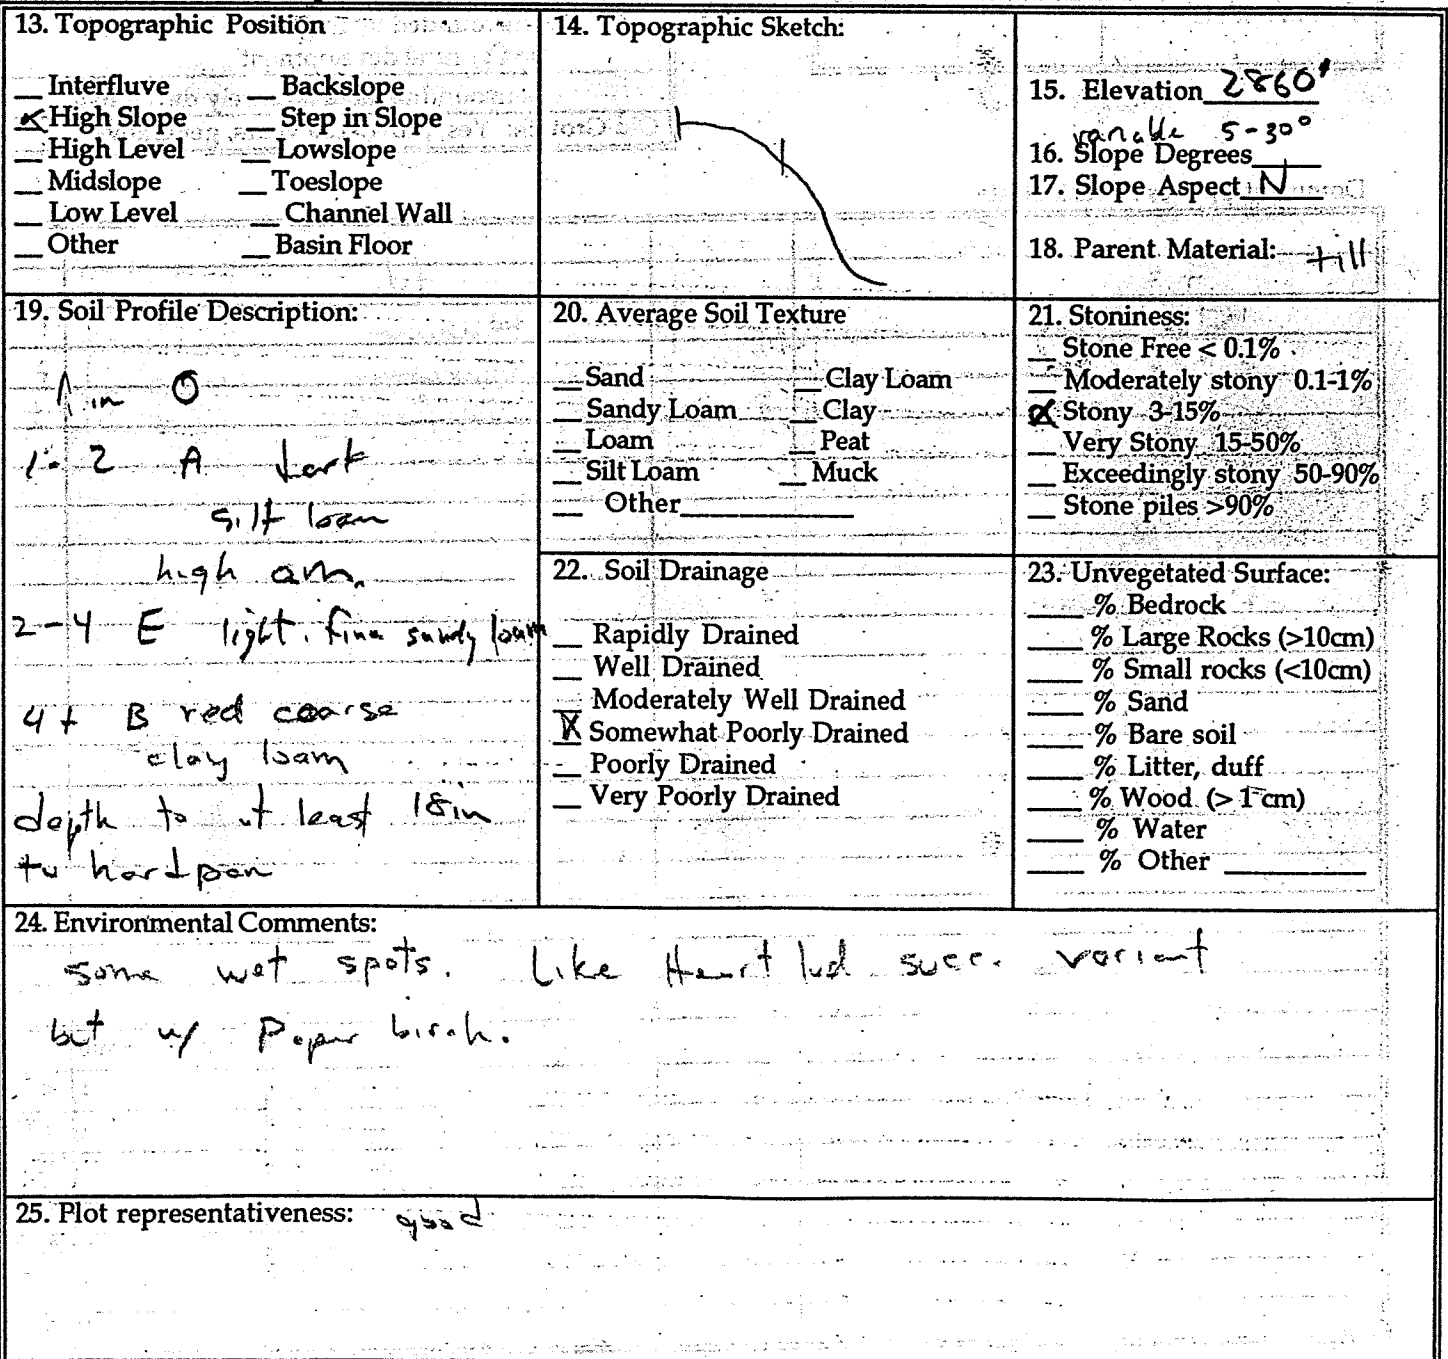 13. Topographic Position
__ Interfluve __ Backslope
X High Slope __ Step in Slope
__ High Level __ Lowslope
__ Midslope __ Toeslope
__ Low Level __ Channel Wall
__ Other __ Basin Floor
14. Topographic Sketch:
15. Elevation 2860'
variable 5-30°
16. Slope Degrees____
17. Slope Aspect N
18. Parent Material: till
19. Soil Profile Description:
1 in O
1-2 A dark
silt loam
high om.
2-4 E light. fine sandy loam
4+ B red coarse
clay loam
depth to at least 18in
to hardpan
20. Average Soil Texture
__ Sand __ Clay Loam
__ Sandy Loam __ Clay
__ Loam __ Peat
__ Silt Loam __ Muck
__ Other____
21. Stoniness:
__ Stone Free < 0.1%
__ Moderately stony 0.1-1%
X Stony 3-15%
__ Very Stony 15-50%
__ Exceedingly stony 50-90%
__ Stone piles >90%
22. Soil Drainage
__ Rapidly Drained
__ Well Drained
__ Moderately Well Drained
X Somewhat Poorly Drained
__ Poorly Drained
__ Very Poorly Drained
23. Unvegetated Surface:
____ % Bedrock
____ % Large Rocks (>10cm)
____ % Small rocks (<10cm)
____ % Sand
____ % Bare soil
____ % Litter, duff
____ % Wood (> 1 cm)
____ % Water
____ % Other ____
24. Environmental Comments:
some wet spots. Like Heart lvd succ. variant
but w/ Paper birch.
25. Plot representativeness: good